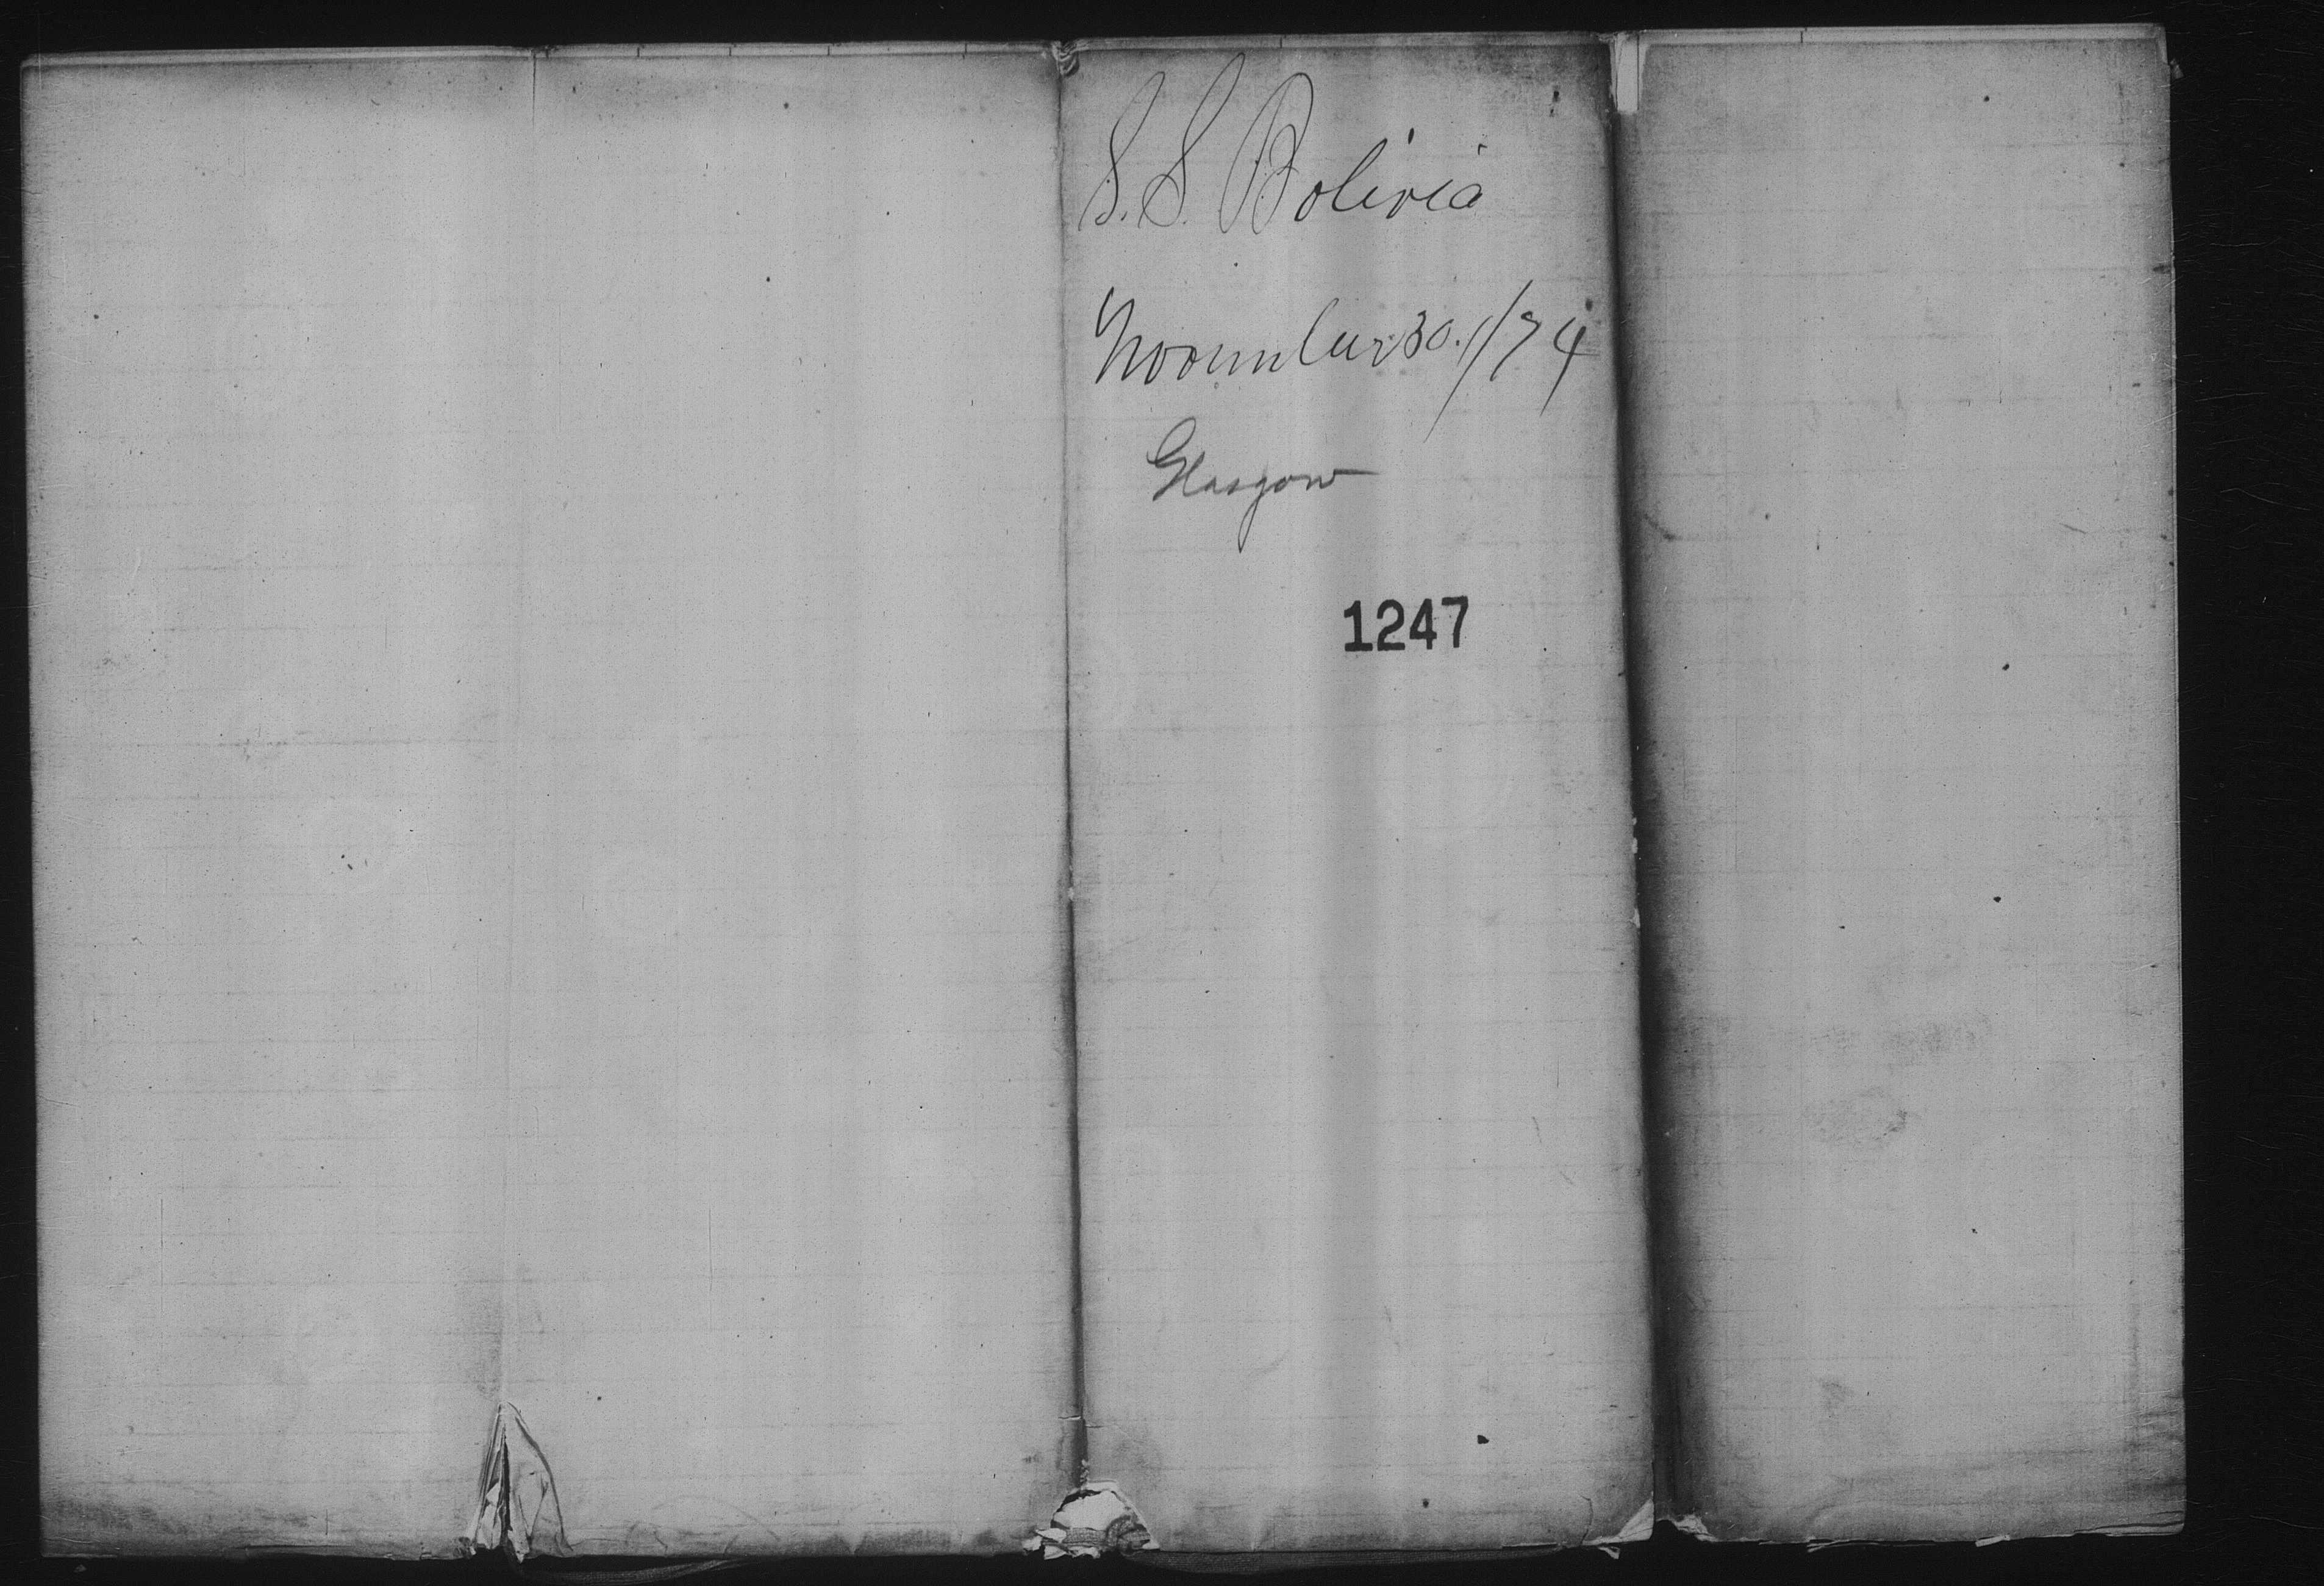 S. S. Bolivia
November 30./74
Glasgow
1247